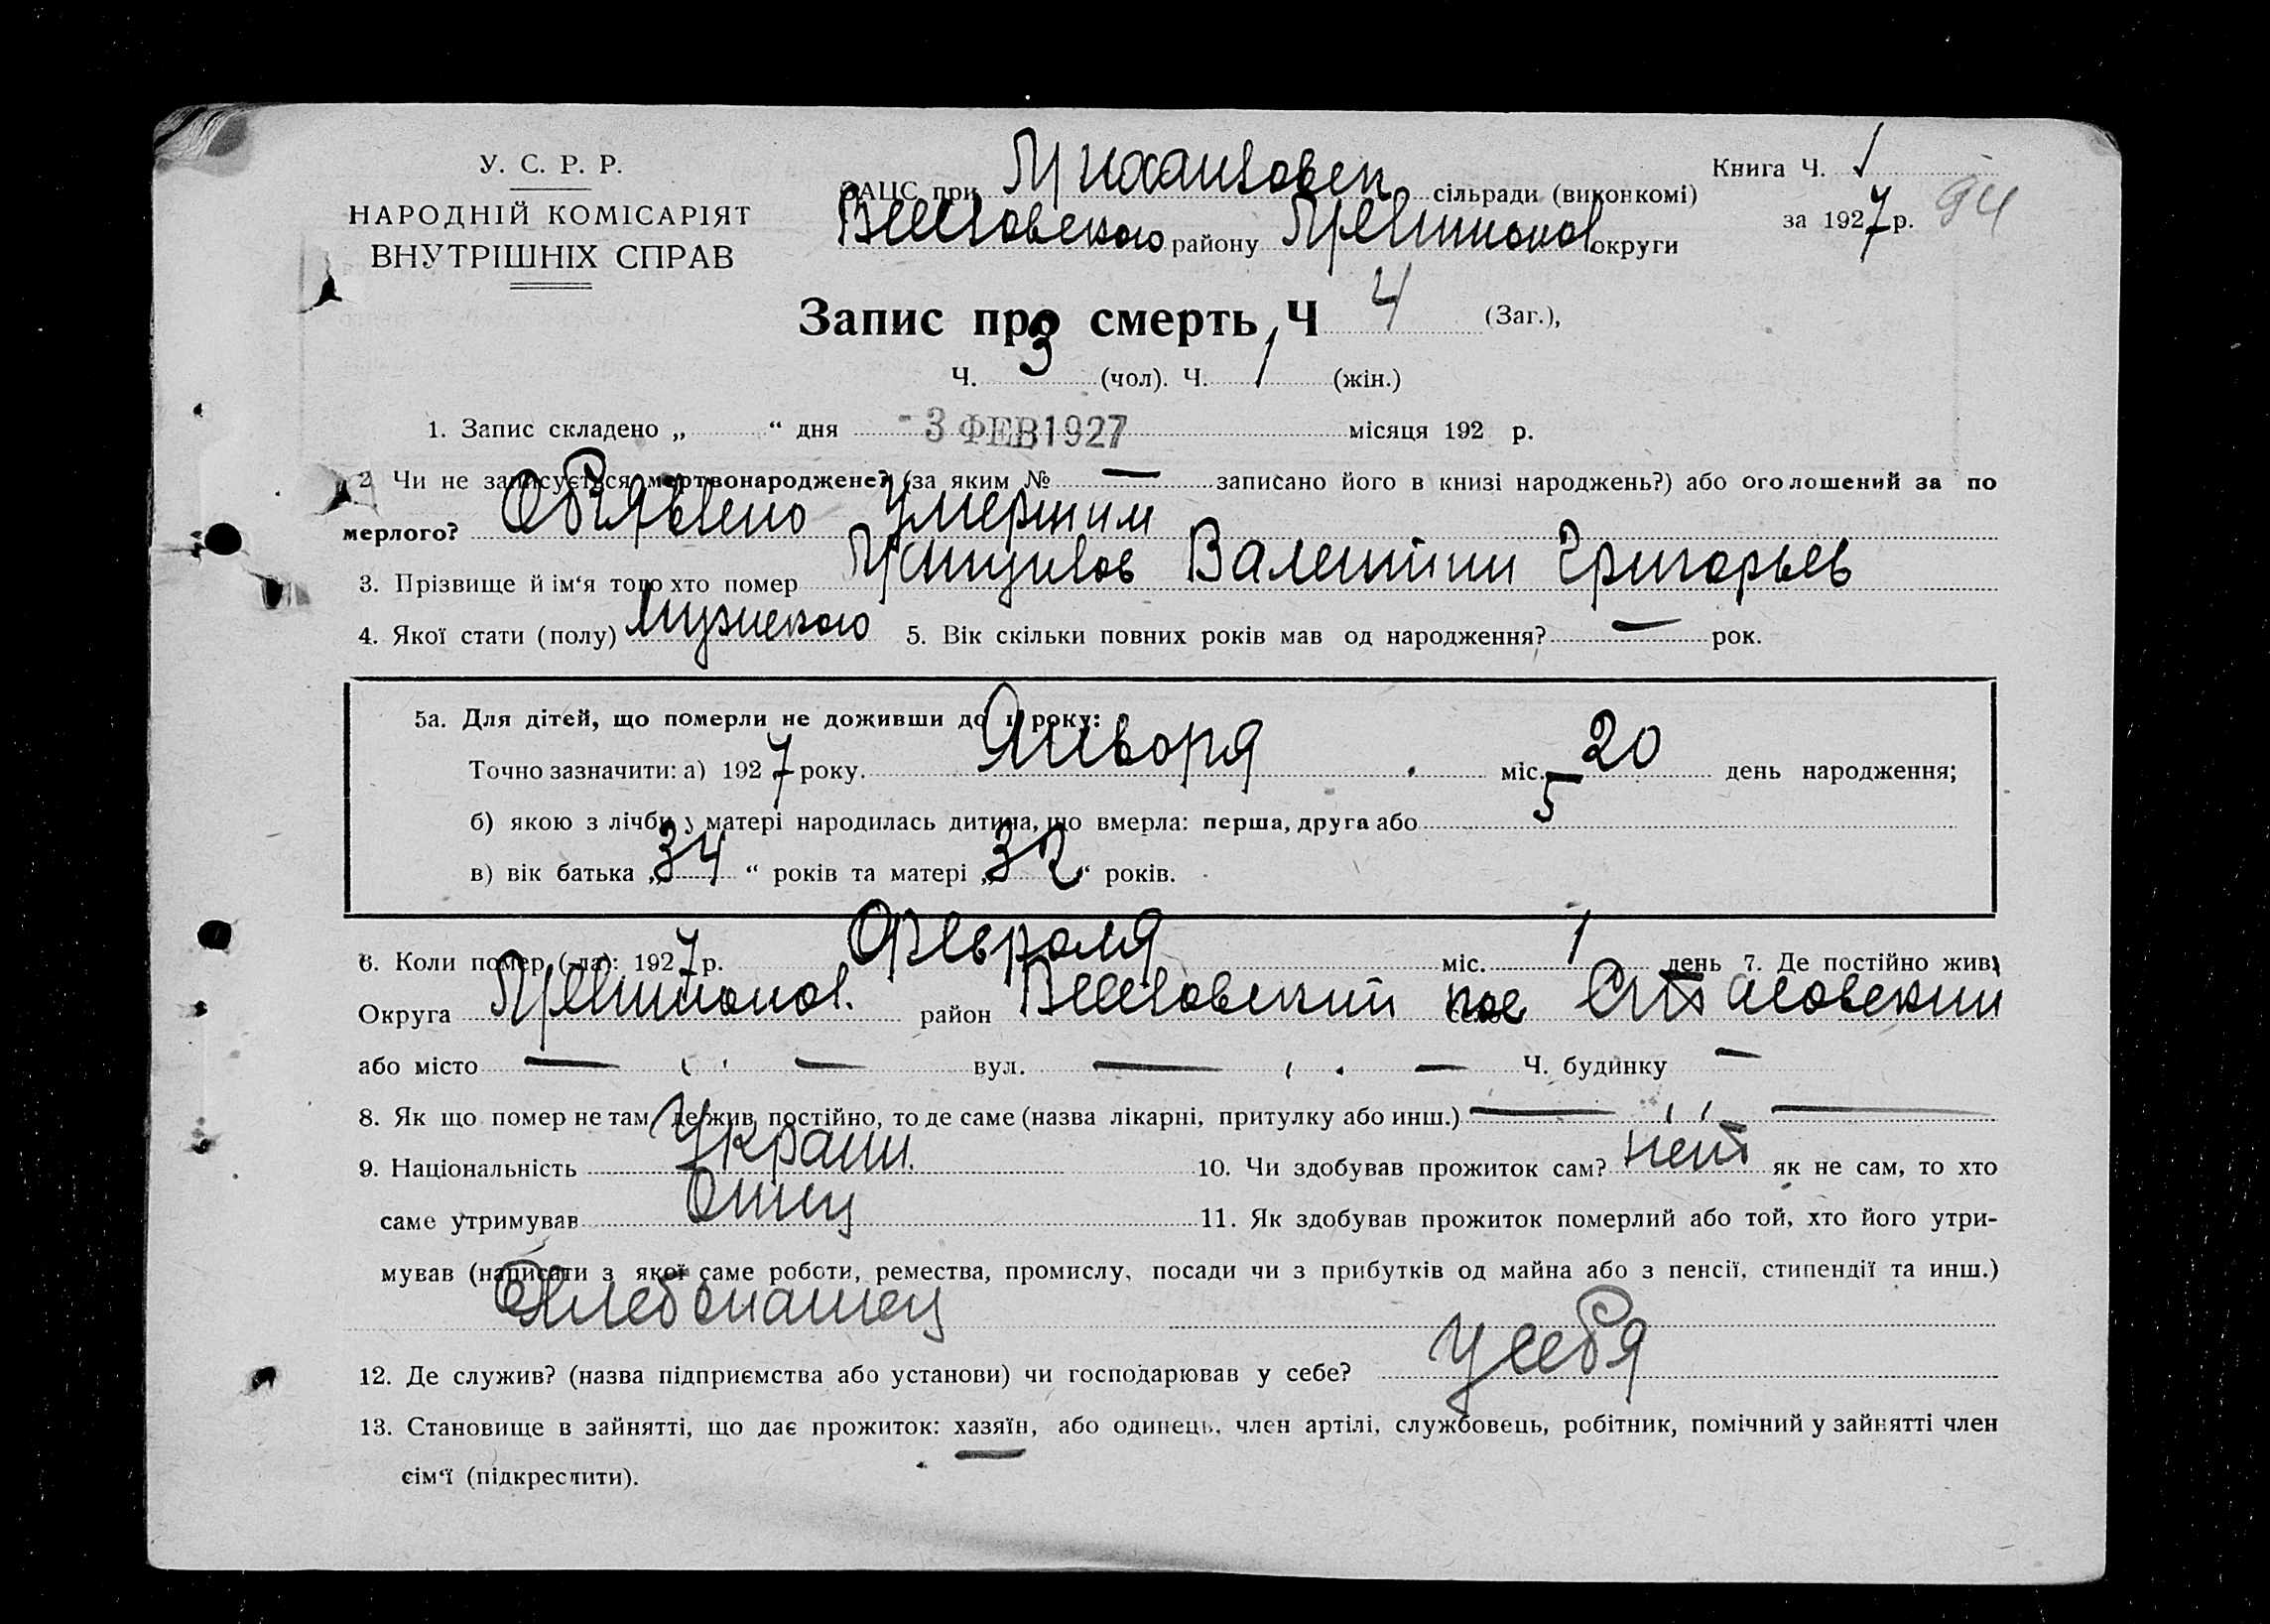 У. С. Р. Р.
НАРОДНІЙ КОМІСАРІЯТ
ВНУТРІШНІХ СПРАВ
ЗАЦС при сільради (виконкомі)
району округи
Книга Ч. 1
за 1927 р. 94
Запис про смерть Ч 4 (Заг.),
Ч. 3 (чол). Ч. 1 (жін.)
1. Запис складено „ “ дня - 3 ФЕВ 1927 місяця 192 р.
2 Чи не записується мертвонароджене? (за яким № — записано його в книзі народжень?) або оголошений за по
мерлого? Объявлено умершим
3. Прізвище й ім‘я того хто помер Валентин Григорьев
4. Якої стати (полу) мужского 5. Вік скільки повних років мав од народження? — рок.
5а. Для дітей, що померли не доживши до 1 року:
Точно зазначити: а) 1927 року. Января міс. 20 день народження;
б) якою з лічби у матері народилась дитина, що вмерла: перша, друга або 5
в) вік батька „34“ років та матері „32“ років.
6. Коли помер (-ла): 1927 р. Февраля міс. 1 день 7. Де постійно жив
Округа район пос
або місто — вул. — Ч. будинку —
8. Як що помер не там де жив постійно, то де саме (назва лікарні, притулку або инш.) —
9. Національність Украин. 10. Чи здобував прожиток сам? нет як не сам, то хто
саме утримував Отец 11. Як здобував прожиток померлий або той, хто його утри-
мував (написати з якої саме роботи, ремества, промислу, посади чи з прибутків од майна або з пенсії, стипендії та инш.)
Хлебопашец
12. Де служив? (назва підприємства або установи) чи господарював у себе? у себя
13. Становище в зайнятті, що дає прожиток: хазяїн, або одинець, член артілі, службовець, робітник, помічний у зайнятті член
сім‘ї (підкреслити).